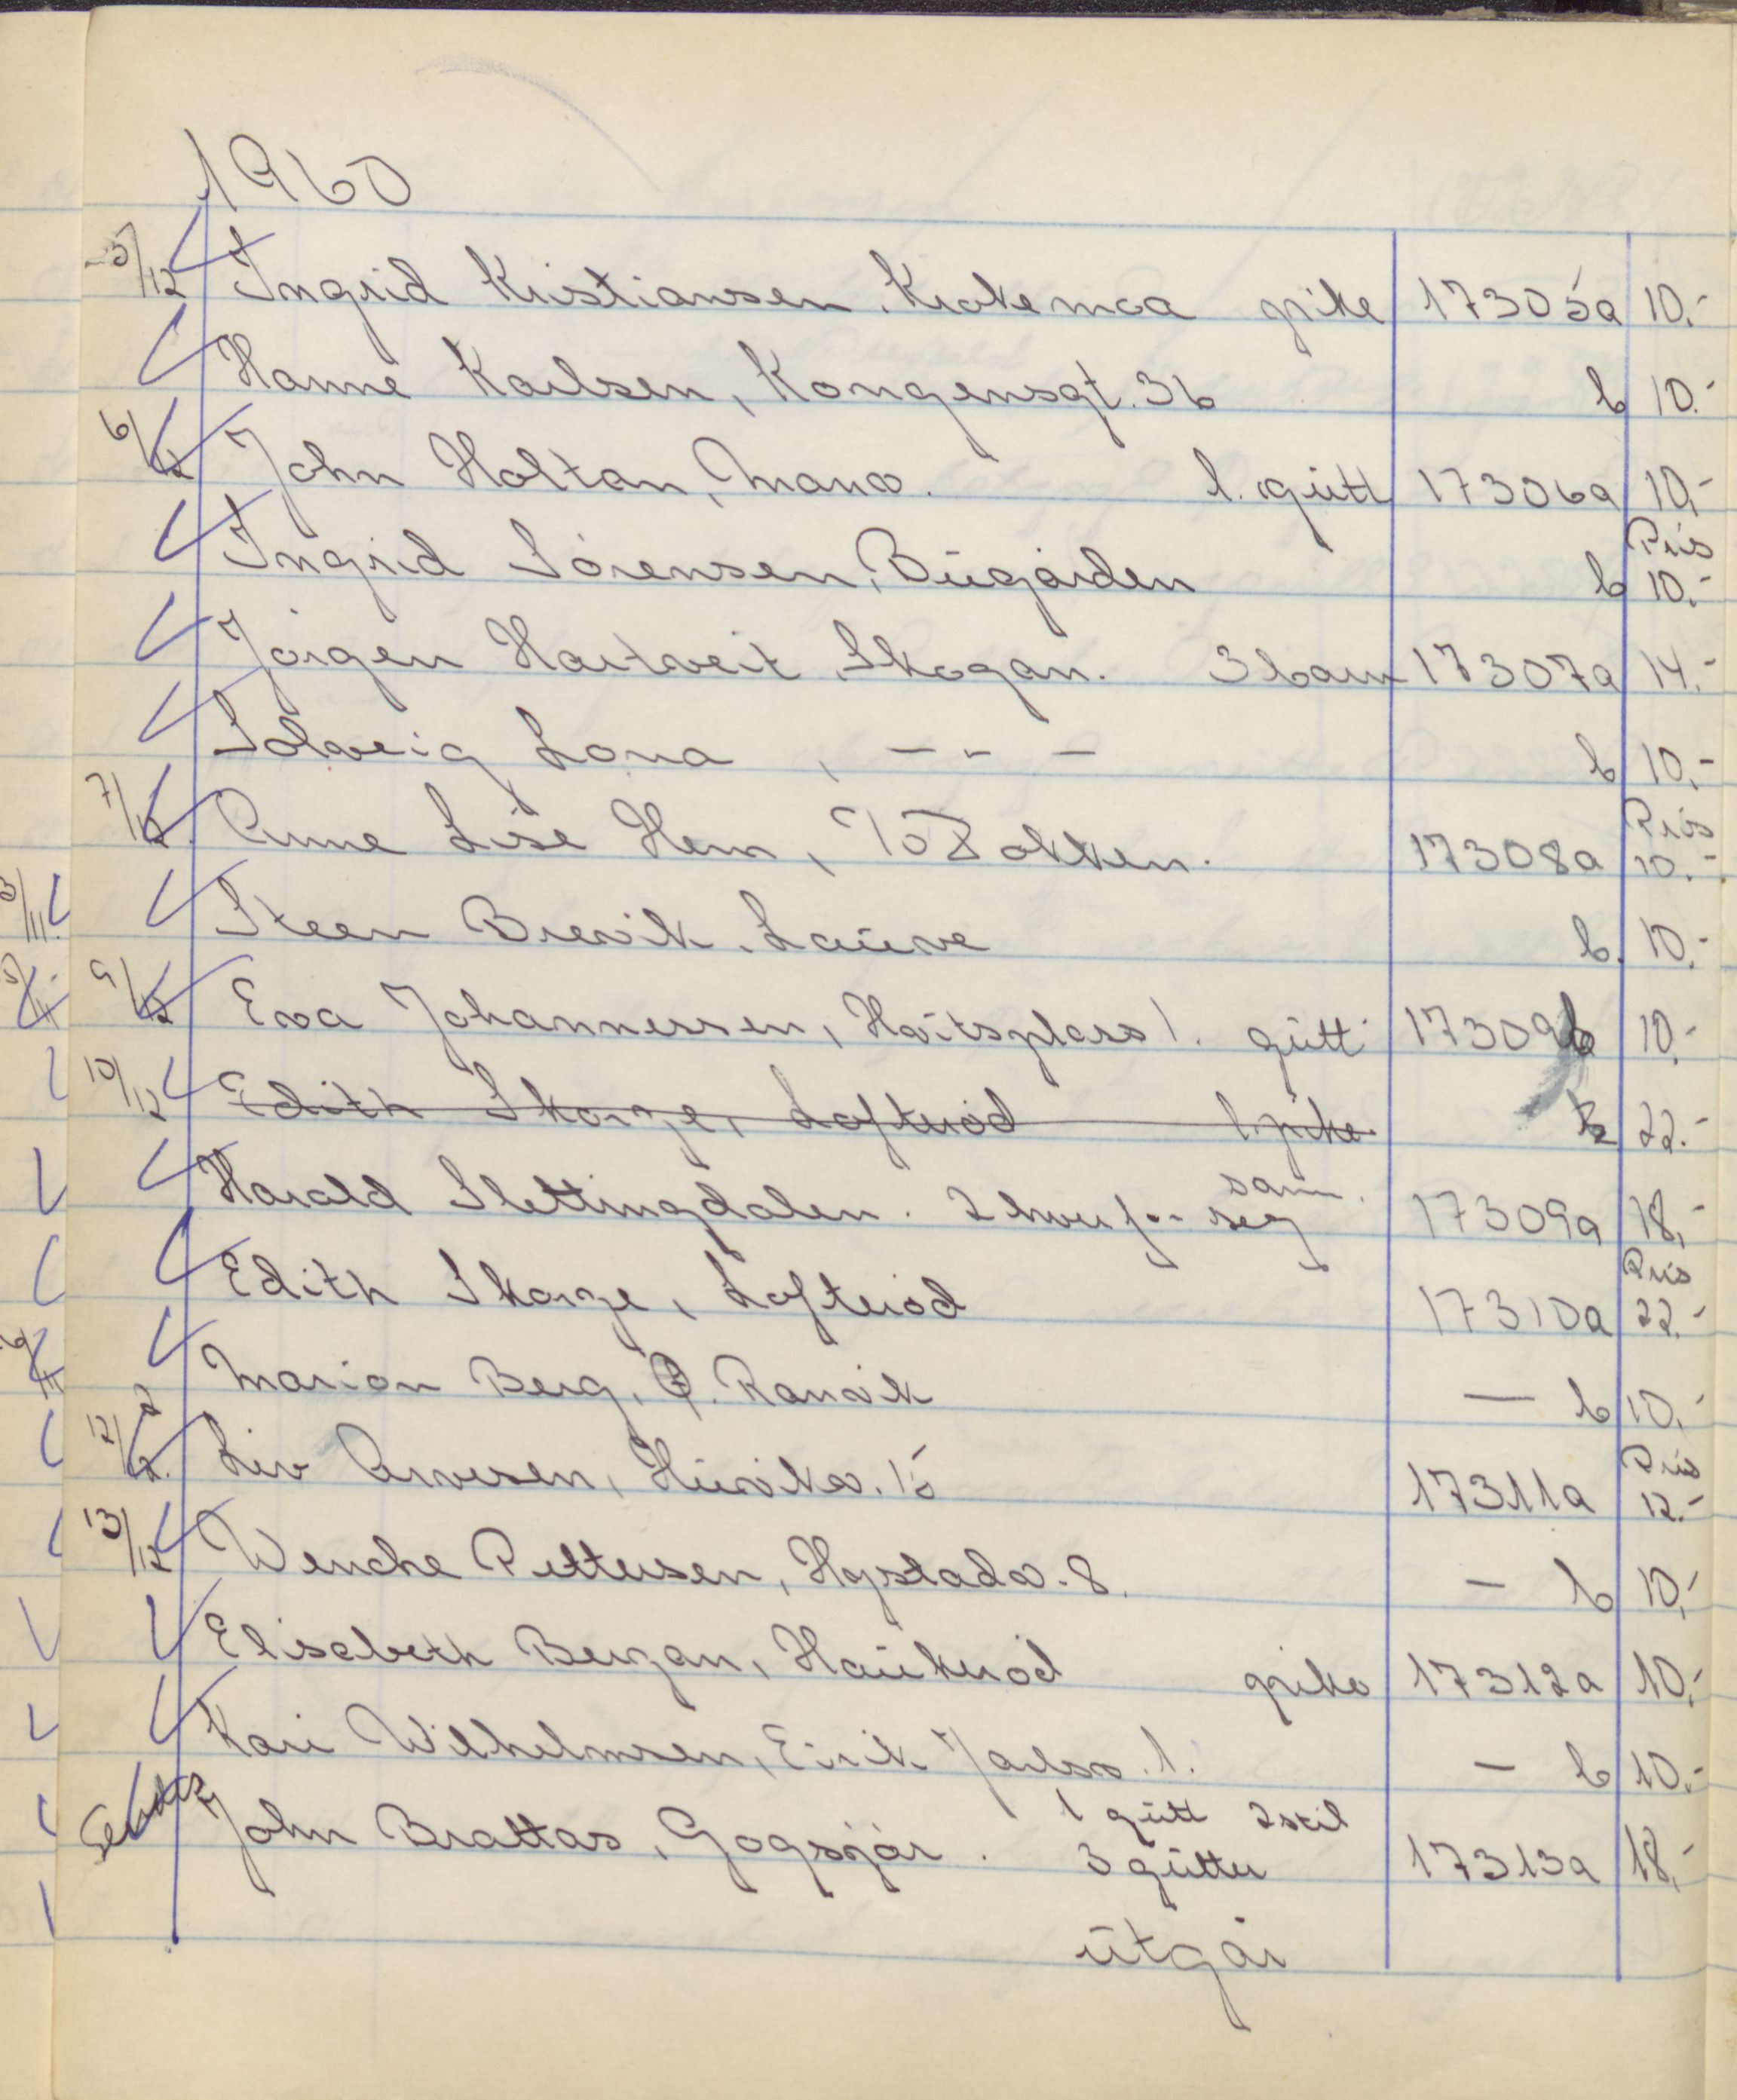 1960
5/12 Ingrid Kristiansen, Krokemoa pike 17305a 10.-
Hanne Karlsen, Kongensgt. 36 b 10.-
6/12 John Holtan, Mana. 1. gutt 17306a 10,-
Pris
Ingrid Sørensen, Bugården b 10.-
Jørgen Hartveit, Skogan. 3 barn 17307a 14.-
Solveig Lona, - " - b 10,-
Pris
7/12 Anne Lise Hem, 17308a 10.-
Steen Brevik, Lauve b. 10.-
9/12 Eva Johannessen, Hvitsplass 1. gutt 17309b 10,-
10/12 Edith Skorge, Lofterød 1. pike b 22.-
sam.
Harald Slettingdalen. 2 seg 17309a 18,-
Pris
Edith Skorge, Lofterød 17310a 22.-
Marion Berg, Ø. Ranvik - b 10,-
Pris
12/12. Liv Arvesen, Huvikv. 15 17311a 12.-
13/12 Wenche Pettersen, Hystadv. 8. - b 10,-
Elisabeth Bergan, Haukerød pike 17312a 10,-
Kari Wilhelmsen, Eirik Jarlsv. 1. - b 10.-
1 gutt 2 stil
John Brattås, Gogsjør. 3 gutter 17313a 18,-
utgår